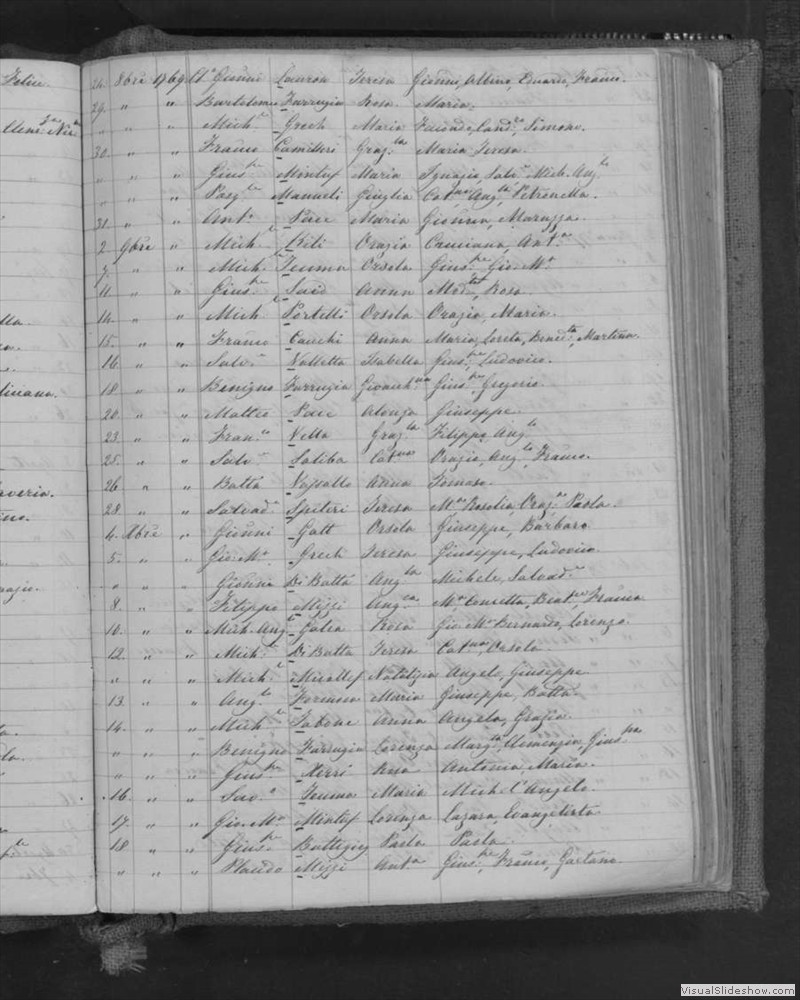 Felice
24. 8bre 1769 Cl.o Gionni Lauron Teresa Gionni, Albino, Eduardo, Franco.
29. " " Bartolomeo Farrugia Rosa Maria.
" " " Mich.e Grech Maria Simone.
30. " " Franco Camilleri Graz.la Maria Teresa.
" " " Gius.pe Mintof Maria Ignazio Salv.e Mich. Ang.lo
" " " Pasq.le Manueli Giuglia Cat.na Ang.la Petronella.
31. " " Ant.o Pace Maria Gionnia, Maruzza.
2. 9bre " Mich.e Orazia Ant.o
7. " " Mich.e Teuma Orsola Gius.pe, Gio. M.a
11. " " Gius.pe Said Anna Rosa.
14. " " Mich.e Portelli Orsola Orazio, Maria.
15. " " Franco Cauchi Anna Maria, Loreta, Martina.
16. " " Salv.e Valletta Isabella Gius.pe, Ludovico.
18. " " Benigno Farrugia Gioach.na Gius.pe Gregorio.
20. " " Matteo Pace Giuseppe.
23. " " Fran.co Vella Graz.la Filippa Ang.lo
25. " " Salv.e Saliba Cat.na Orazio, Ang.lo, Franco.
26 " " Batta Vassallo Anna Tomaso.
28. " " Salvad.e Spiteri Teresa M.a Rosalia, Graz.a Paola.
4. Xbre " Gionni Gatt Orsola Giuseppe, Barbara
5. " " Gio. M.a Grech Teresa Giuseppe, Ludovico.
" " " Gionnia Di Batta Ang.la Michele, Salvad.e
8. " " Filippo Mizzi Ang.ca M.a Concetta, Franca
10. " " Mich. Ang.lo Galea Rosa Gio. M.a Bernardo, Lorenzo.
12. " " Mich.e Di Batta Teresa Cat.na, Orsola.
" " " Mich.e Micallef Natalizia Angelo, Giuseppe.
13. " " Ang.lo Formosa Maria Giuseppe, Batta
14. " " Mich.e Tabone Anna Angela, Grazia.
" " " Benigno Farrugia Lorenza Marg.ta, Clemenzia, Gius.pa
" " " Gius.pe Xerri Rosa Antonia, Maria.
16. " " Sav.o Teuma Maria Mich.l'Angelo.
17. " " Gio. M.a Mintof Lorenza Lazara, Evangelista
18 " " Gius.pe Buttigieg Paola Paola.
" " " Placido Mizzi Ant.a Gius.pe, Franco, Gaetano.
VisualSlideshow.com